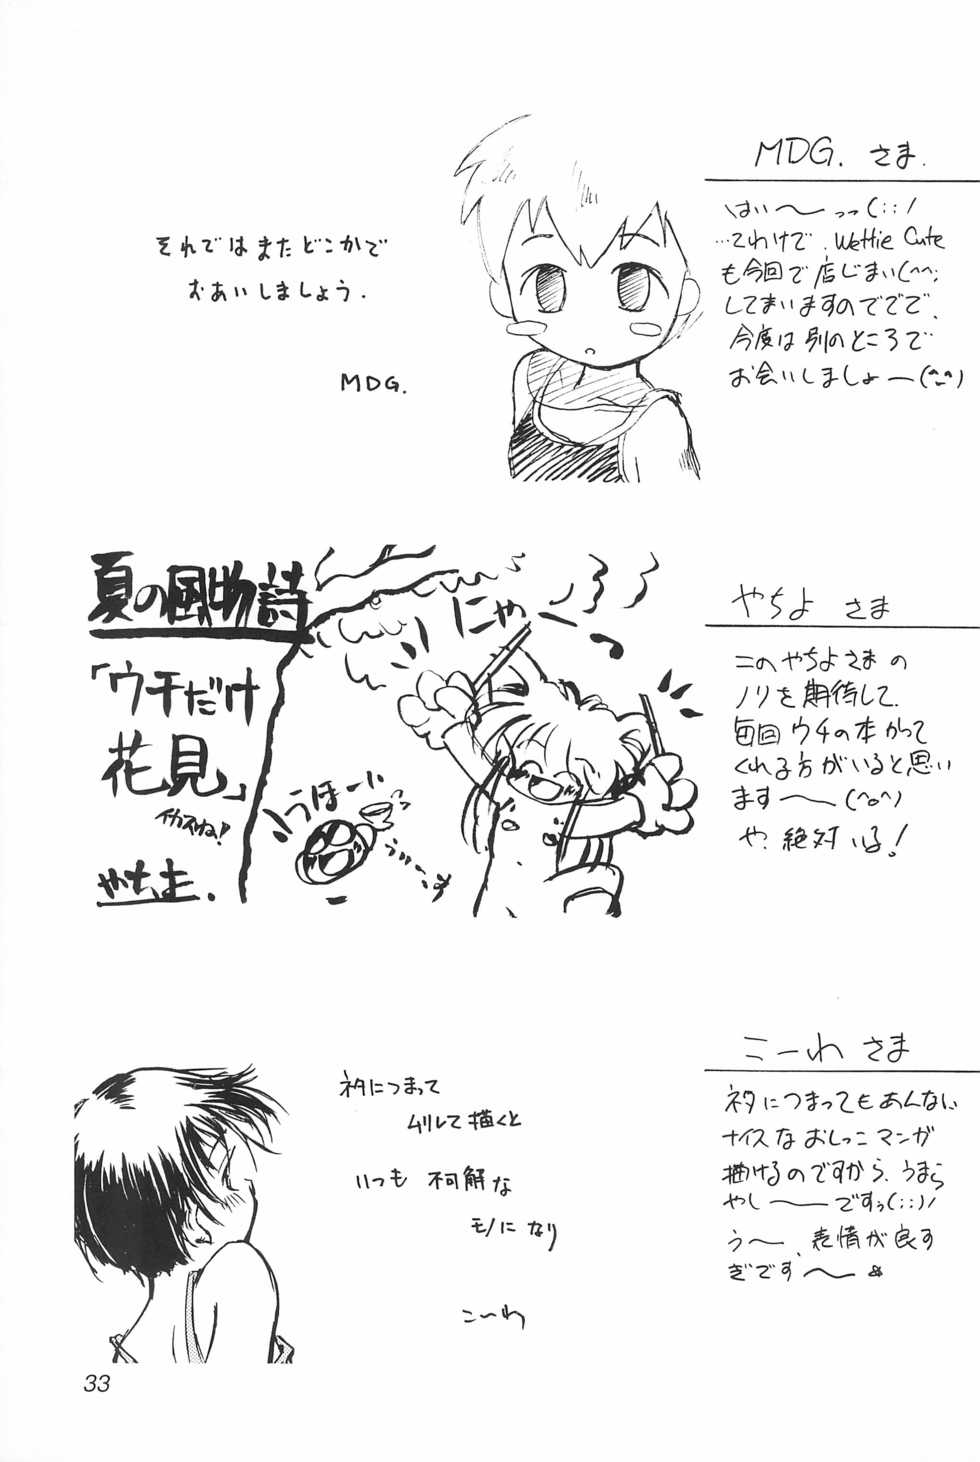 MDG. さま.
はい〜っっ(；；)
…てわけで、Wettie Cute
も今回で店じまい(^^;
してまいますのでででで、
今度は別のところで
お会いしましょー(^_^)
それではまたどこかで
おあいしましょう.
MDG.
やちよ さま
このやちよさまの
ノリを期待して、
毎回ウチの本かって
くれる方がいると思い
ます〜(^o^)
や、絶対いる!
夏の風物詩
「ウチだけ
花見」
イカスね!
やちよ.
にゃ〜
うほー!
こーわ さま
ネタにつまってもあんない
ナイスなおしっこマンガ
描けるのですから、うまら
やし〜ですぅ(；；)
う〜、表情が良す
ぎです〜
ネタにつまって
ムリして描くと
いつも 不可解な
モノになり
こーわ
33